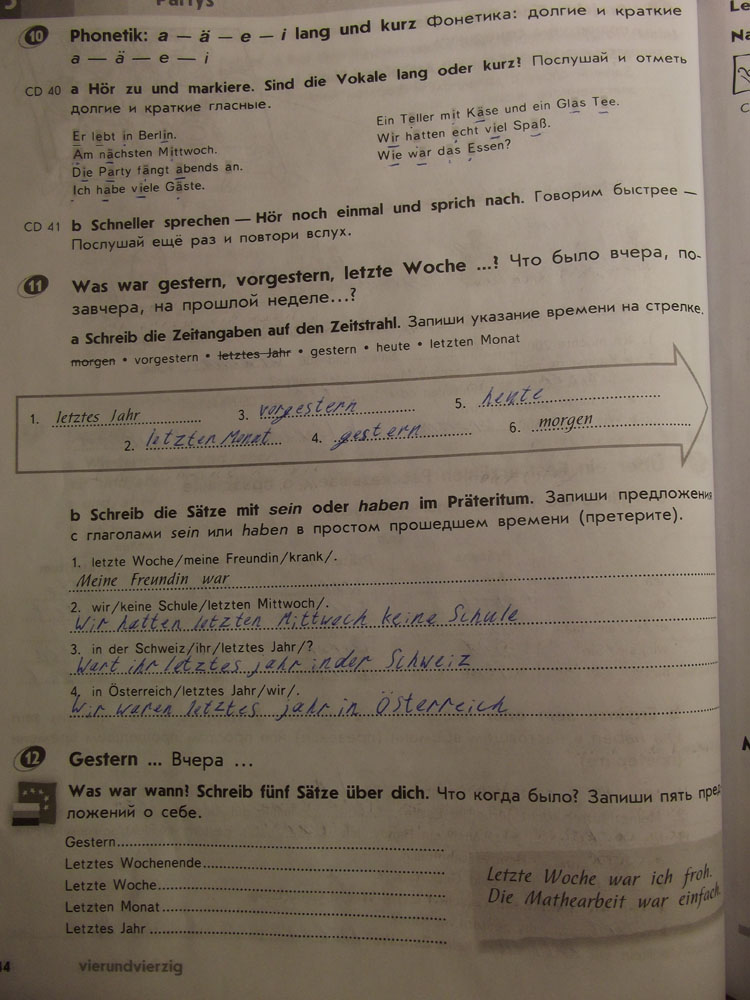 Partys
10 Phonetik: a — ä — e — i lang und kurz Фонетика: долгие и краткие
a — ä — e — i
CD 40 a Hör zu und markiere. Sind die Vokale lang oder kurz? Послушай и отметь
долгие и краткие гласные.
Er lebt in Berlin.
Am nächsten Mittwoch.
Die Party fängt abends an.
Ich habe viele Gäste.
Ein Teller mit Käse und ein Glas Tee.
Wir hatten echt viel Spaß.
Wie war das Essen?
CD 41 b Schneller sprechen — Hör noch einmal und sprich nach. Говорим быстрее —
Послушай ещё раз и повтори вслух.
11 Was war gestern, vorgestern, letzte Woche ...? Что было вчера, по-
завчера, на прошлой неделе...?
a Schreib die Zeitangaben auf den Zeitstrahl. Запиши указание времени на стрелке.
morgen • vorgestern • letztes Jahr • gestern • heute • letzten Monat
1. letztes Jahr 3. vorgestern 5. heute
2. letzten Monat 4. gestern 6. morgen
b Schreib die Sätze mit sein oder haben im Präteritum. Запиши предложения
с глаголами sein или haben в простом прошедшем времени (претерите).
1. letzte Woche/meine Freundin/krank/.
Meine Freundin war
2. wir/keine Schule/letzten Mittwoch/.
Wir hatten letzten Mittwoch keine Schule
3. in der Schweiz/ihr/letztes Jahr/?
Wart ihr letztes jahr in der Schweiz
4. in Österreich/letztes Jahr/wir/.
Wir waren letztes jahr in Österreich
12 Gestern ... Вчера ...
Was war wann? Schreib fünf Sätze über dich. Что когда было? Запиши пять пред-
ложений о себе.
Gestern
Letztes Wochenende
Letzte Woche
Letzten Monat
Letztes Jahr
Letzte Woche war ich froh.
Die Mathearbeit war einfach.
44 vierundvierzig